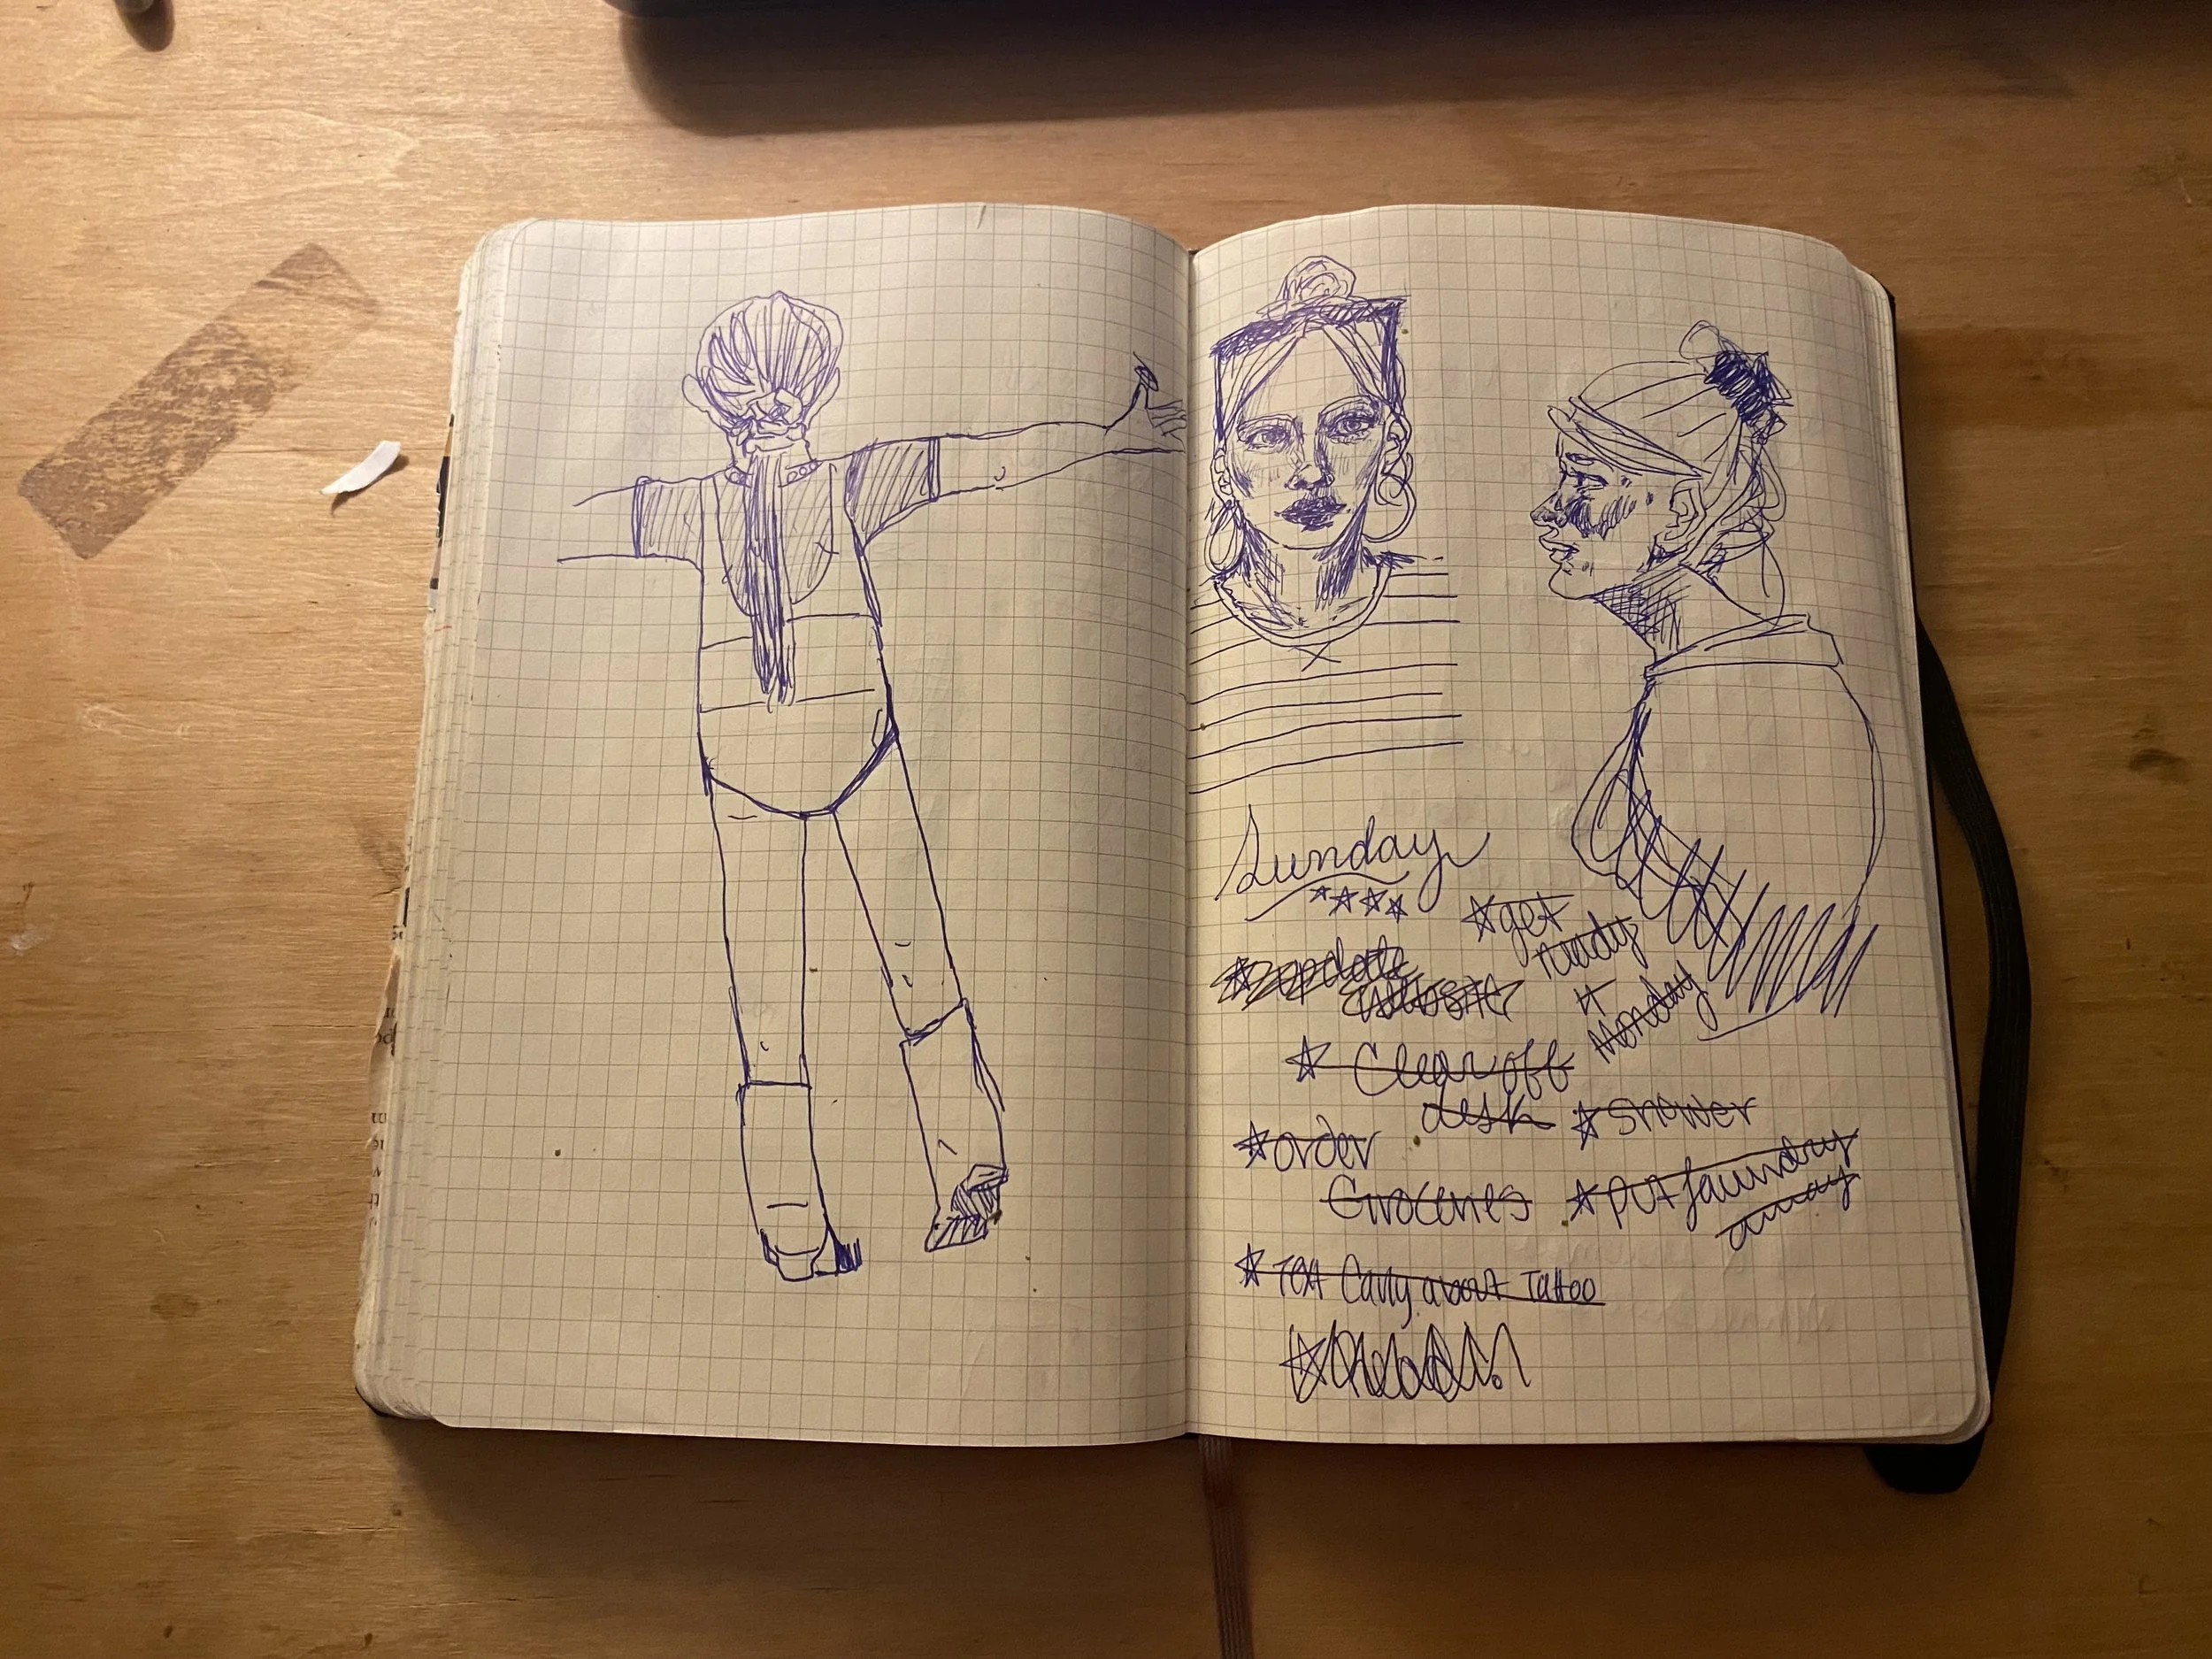 Sunday
*update
website
*get
ready
4
Monday
* Clear off
desk
*shower
*order
Groceries
*put laundry
away
* Text Carly about Tattoo